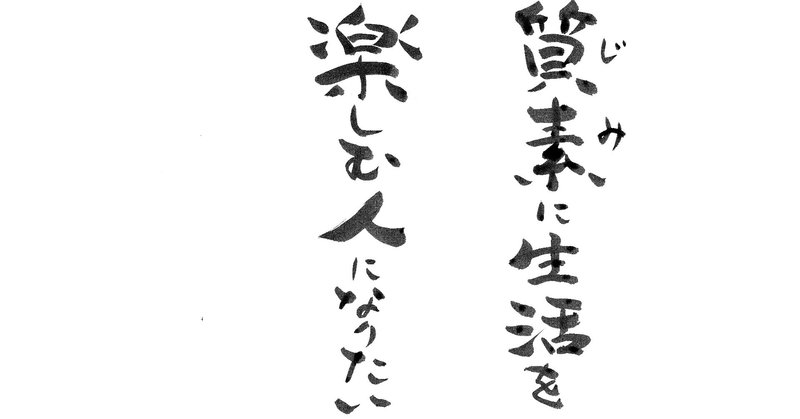 質素に生活を
じみ
楽しむ人になりたい